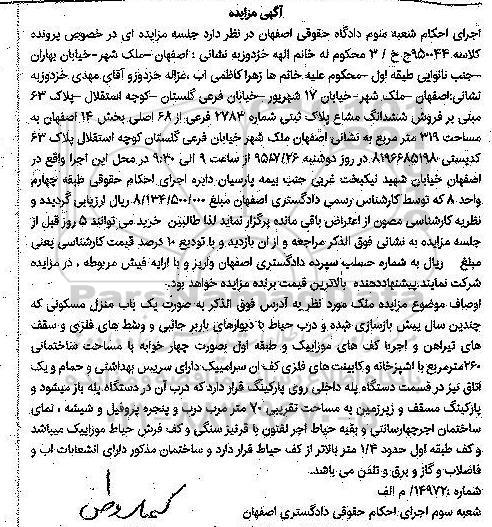 آگهی مزایده
اجرای احکام شعبه سوم دادگاه حقوقی اصفهان در نظر دارد جلسه مزایده ای در خصوص پرونده
کلاسه ۹۵۰۰۴۴ج ح / ۳ محکوم له خانم الهه خزدوزبه نشانی : اصفهان -ملک شهر-خیابان بهاران
-جنب نانوایی طبقه اول -محکوم علیه خانم ها زهرا کاظمی اب ،غزاله خزدوزو آقای مهدی خزدوزبه
نشانی:اصفهان -ملک شهر-خیابان ۱۷ شهریور -خیابان فرعی گلستان -کوچه استقلال -پلاک ۶۳
مبنی بر فروش ششدانگ مشاع پلاک ثبتی شماره ۲۷۸۳ فرعی از ۶۸ اصلی بخش ۱۴ اصفهان به
مساحت ۳۱۹ متر مربع به نشانی اصفهان ملک شهر خیابان فرعی گلستان کوچه استقلال پلاک ۶۳
کدپستی ۸۱۹۶۶۸۵۱۹۸ در روز دوشنبه ۹۵/۷/۲۶ از ساعت ۹ الی ۹:۳۰ در محل این اجرا واقع در
اصفهان خیابان شهید نیکبخت غربی جنب بیمه پارسیان دایره اجرای احکام حقوقی طبقه چهارم
واحد ۸ که توسط کارشناس رسمی دادگستری اصفهان مبلغ ۸/۱۳۴/۵۰۰/۰۰۰ ریال ارزیابی گردیده و
نظریه کارشناسی مصون از اعتراض باقی مانده برگزار نماید لذا طالبین خرید می توانند ۵ روز قبل از
جلسه مزایده به نشانی فوق الذکر مراجعه و از ان بازدید و با تودیع ۱۰ درصد قیمت کارشناسی یعنی
مبلغ ریال به شماره حساب سپرده دادگستری اصفهان واریز و با ارایه فیش مربوطه ، در مزایده
شرکت نمایند.پیشنهاددهنده بالاترین قیمت برنده مزایده خواهد بود.
اوصاف موضوع مزایده ملک مورد نظر به آدرس فوق الذکر به صورت یک باب منزل مسکونی که
چندین سال پیش بازسازی شده و درب حیاط با دیوارهای باربر جانبی و وسط های فلزی و سقف
های تیراهن و اجربا کف های موزاییک و طبقه اول بصورت چهار خوابه با مساحت ساختمانی
۲۶۰مترمربع با اشپزخانه و کابینت های فلزی کف ان سرامیک دارای سرپس بهداشتی و حمام و یک
اتاق نیز در قسمت دستگاه پله داخلی روی پارکینگ قرار دارد که درب آن در دستگاه پله باز میشود و
پارکینگ مسقف و زیرزمین به مساحت تقریبی ۷۰ متر مرب درب و پنجره پروفیل و شیشه ، نمای
ساختمان اجرچهارسانتی و بقیه حیاط اجر لفتون با قرنیز سنگی و کف فرش حیاط موزاییک میباشد
و کف طبقه اول حدود ۱/۴ متر بالاتر از کف حیاط قرار دارد و ساختمان مذکور دارای انشعابات اب و
فاضلاب و گاز و برق و تلفن می باشد.
شماره :۱۴۹۷۲/ م الف
شعبه سوم اجرای احکام حقوقی دادگستری اصفهان